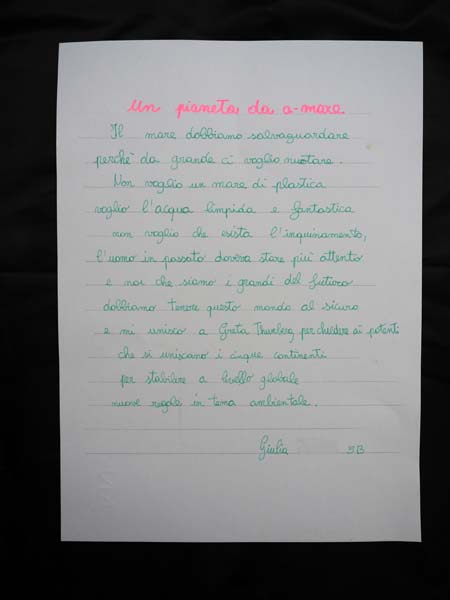 Un pianeta da a-mare
Il mare dobbiamo salvaguardare
perchè da grande ci voglio nuotare.
Non voglio un mare di plastica
voglio l'acqua limpida e fantastica
non voglio che esista l'inquinamento,
l'uomo in passato doveva stare più attento
e noi che siamo i grandi del futuro
dobbiamo tenere questo mondo al sicuro
e mi unisco a Greta Thunberg per chiedere ai potenti
che si uniscano i cinque continenti
per stabilire a livello globale
nuove regole in tema ambientale.
Giulia 5B